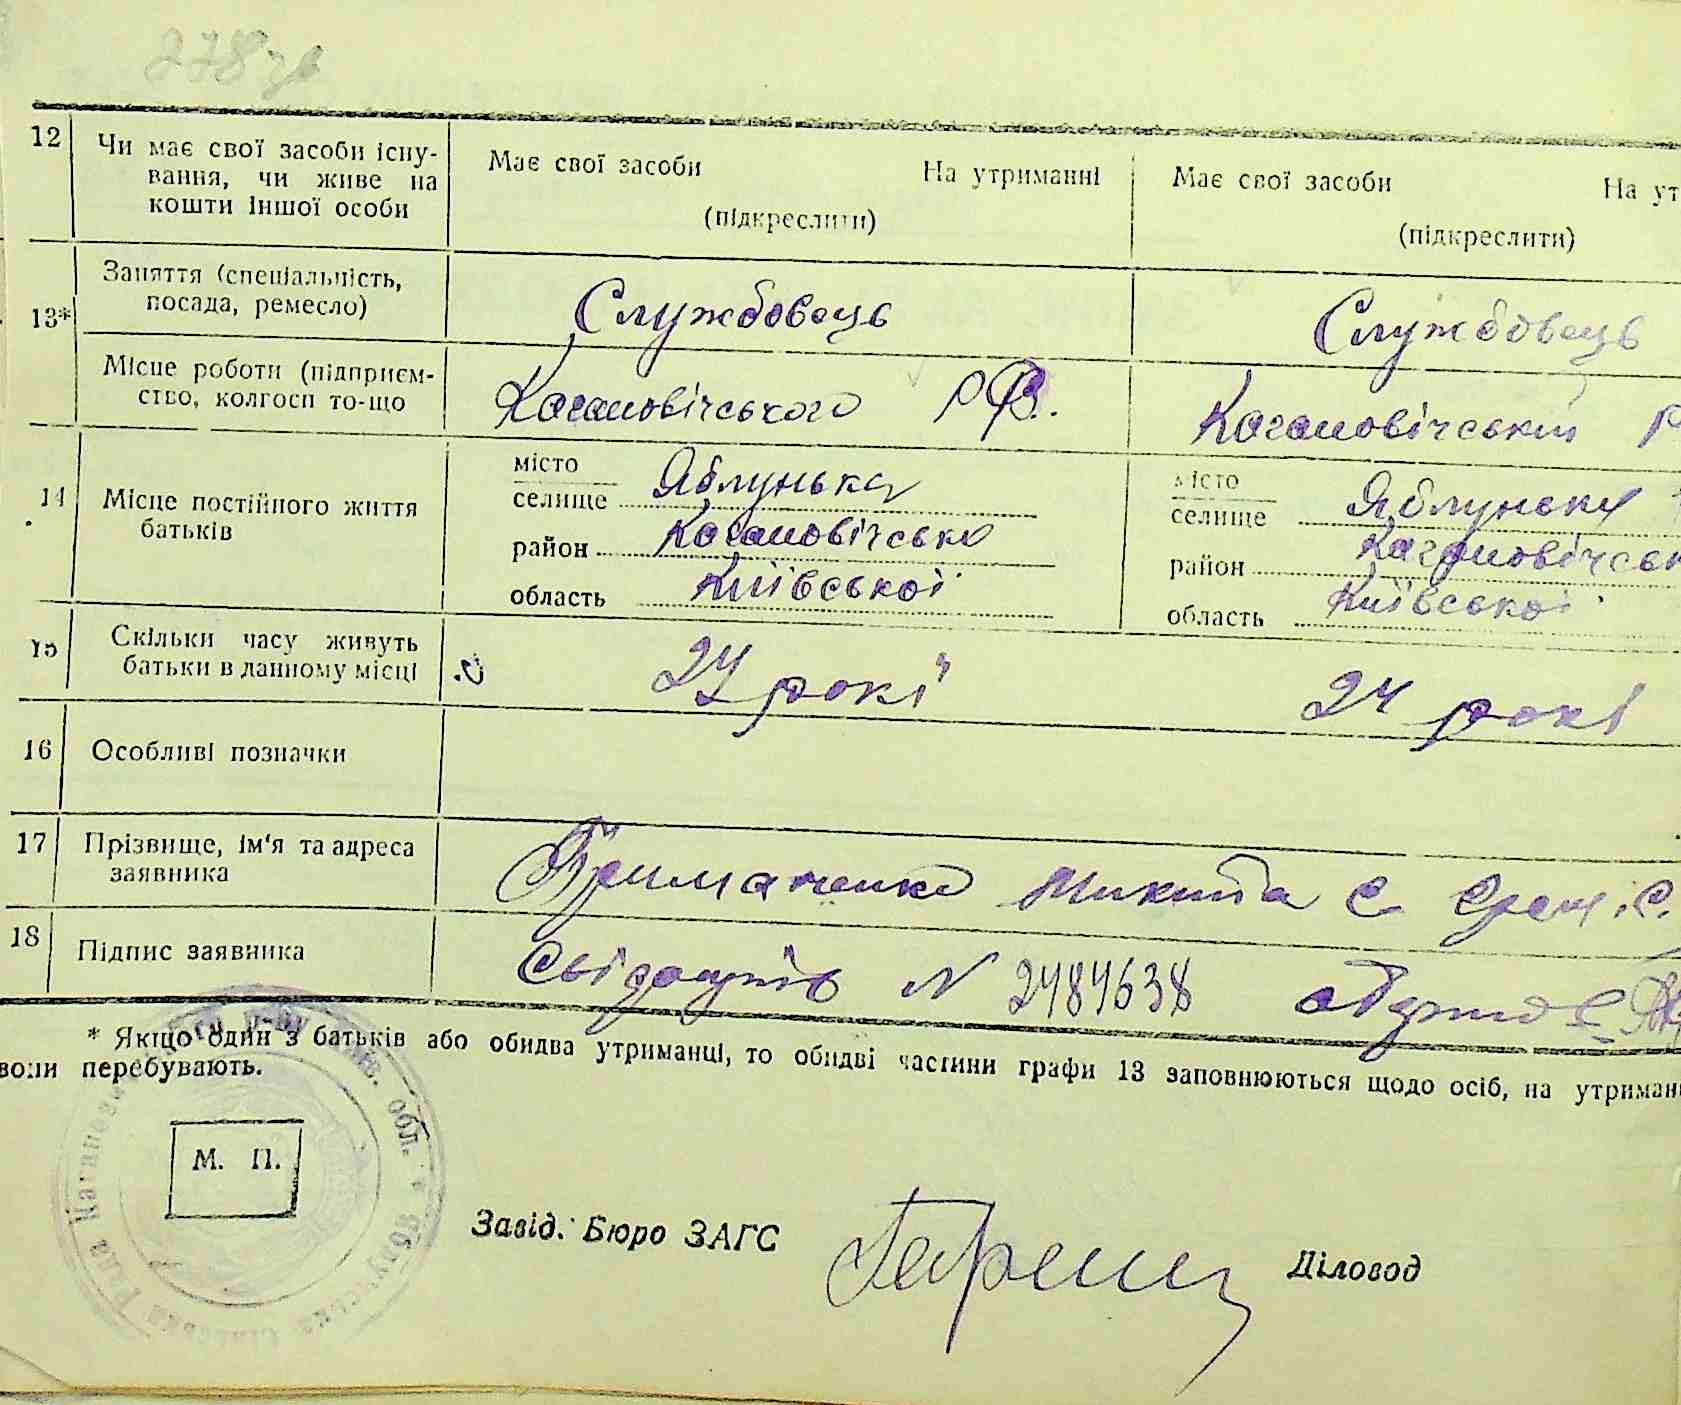 278
12 Чи має свої засоби існу-
вання, чи живе на
кошти іншої особи
Має свої засоби На утриманні
(підкреслити)
Має свої засоби На ут
(підкреслити)
13*
Заняття (спеціальність,
посада, ремесло)
Службовець Службовець
Місце роботи (підприєм-
ство, колгосп то-що
Кагановічського Р.В. Кагановічський Р
14 Місце постійного життя
батьків
місто
селище Яблунька
район Кагановічсько
область Київської
місто
селище Яблунька
район Кагановічськ
область Київської
15 Скільки часу живуть
батьки в данному місці
24 рокі 24 рокі
16 Особливі позначки
17 Прізвище, ім'я та адреса
заявника
Приманенко Микита С.
18 Підпис заявника
Свідоцтв N 2484638
* Якщо один з батьків або обидва утриманці, то обидві частини графи 13 заповнюються щодо осіб, на утриман
вони перебувають.
М. П.
Завід. Бюро ЗАГС
Діловод